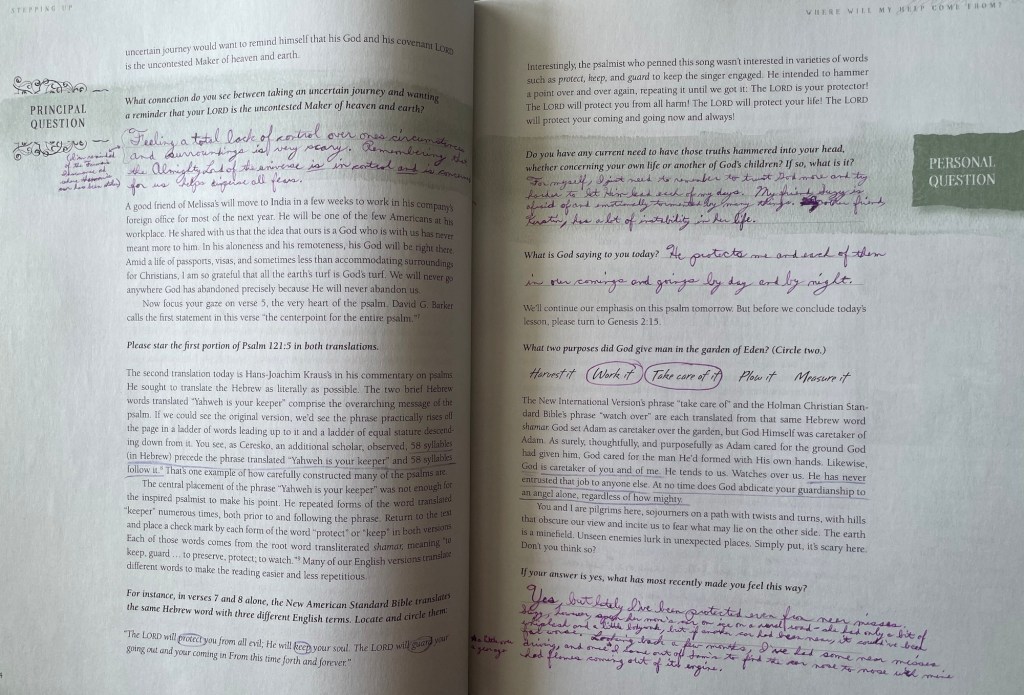 STEPPING UP
uncertain journey would want to remind himself that his God and his covenant LORD
is the uncontested Maker of heaven and earth.
PRINCIPAL
QUESTION
What connection do you see between taking an uncertain journey and wanting
a reminder that your LORD is the uncontested Maker of heaven and earth?
Feeling a total lack of control over ones circumstances
and surroundings is very scary. Remembering that
the Almighty Lord of the universe is in control and is concerned
for us helps ease all fears.
A good friend of Melissa's will move to India in a few weeks to work in his company's
foreign office for most of the next year. He will be one of the few Americans at his
workplace. He shared with us that the idea that ours is a God who is with us has never
meant more to him. In his aloneness and his remoteness, his God will be right there.
Amid a life of passports, visas, and sometimes less than accommodating surroundings
for Christians, I am so grateful that all the earth's turf is God's turf. We will never go
anywhere God has abandoned precisely because He will never abandon us.
Now focus your gaze on verse 5, the very heart of the psalm. David G. Barker
calls the first statement in this verse "the centerpoint for the entire psalm."
Please star the first portion of Psalm 121:5 in both translations.
The second translation today is Hans-Joachim Kraus's in his commentary on psalms.
He sought to translate the Hebrew as literally as possible. The two brief Hebrew
words translated "Yahweh is your keeper" comprise the overarching message of the
psalm. If we could see the original version, we'd see the phrase practically rises off
the page in a ladder of words leading up to it and a ladder of equal stature descend-
ing down from it. You see, as Ceresko, an additional scholar, observed, 58 syllables
(in Hebrew) precede the phrase translated "Yahweh is your keeper" and 58 syllables
follow it. That's one example of how carefully constructed many of the psalms are.
The central placement of the phrase "Yahweh is your keeper" was not enough for
the inspired psalmist to make his point. He repeated forms of the word translated
"keeper" numerous times, both prior to and following the phrase. Return to the text
and place a check mark by each form of the word "protect" or "keep" in both versions.
Each of those words comes from the root word transliterated shamar, meaning "to
keep, guard ... to preserve, protect; to watch." Many of our English versions translate
different words to make the reading easier and less repetitious.
For instance, in verses 7 and 8 alone, the New American Standard Bible translates
the same Hebrew word with three different English terms. Locate and circle them:
"The LORD will protect you from all evil; He will keep your soul. The LORD will guard your
going out and your coming in From this time forth and forever."
WHERE WILL MY HELP COME FROM?
Interestingly, the psalmist who penned this song wasn't interested in varieties of words
such as protect, keep, and guard to keep the singer engaged. He intended to hammer
a point over and over again, repeating it until we got it: The LORD is your protector!
The LORD will protect you from all harm! The LORD will protect your life! The LORD
will protect your coming and going now and always!
PERSONAL
QUESTION
Do you have any current need to have those truths hammered into your head,
whether concerning your own life or another of God's children? If so, what is it?
For myself, I just need to remember to trust God more and try
harder to let Him lead each of my days. My friend
afraid of and emotionally tormented by many things. friend
has a lot of instability in her life.
What is God saying to you today? He protects me and each of them
in our comings and goings by day and by night.
We'll continue our emphasis on this psalm tomorrow. But before we conclude today's
lesson, please turn to Genesis 2:15.
What two purposes did God give man in the garden of Eden? (Circle two.)
Harvest it Work it Take care of it Plow it Measure it
The New International Version's phrase "take care of" and the Holman Christian Stan-
dard Bible's phrase "watch over" are each translated from that same Hebrew word
shamar. God set Adam as caretaker over the garden, but God Himself was caretaker of
Adam. As surely, thoughtfully, and purposefully as Adam cared for the ground God
had given him, God cared for the man He'd formed with His own hands. Likewise,
God is caretaker of you and of me. He tends to us. Watches over us. He has never
entrusted that job to anyone else. At no time does God abdicate your guardianship to
an angel alone, regardless of how mighty.
You and I are pilgrims here, sojourners on a path with twists and turns, with hills
that obscure our view and incite us to fear what may lie on the other side. The earth
is a minefield. Unseen enemies lurk in unexpected places. Simply put, it's scary here.
Don't you think so?
If your answer is yes, what has most recently made you feel this way?
Yes, but lately I've been protected even from near misses.
mom's car on ice on a road - she had only a bit of
whiplash and a little but if another car had been near, it could've been
far worse. Looking back few months, I've had some near misses
driving, and once I came out of to find the car nose to nose with mine
had flames coming out of its engine.